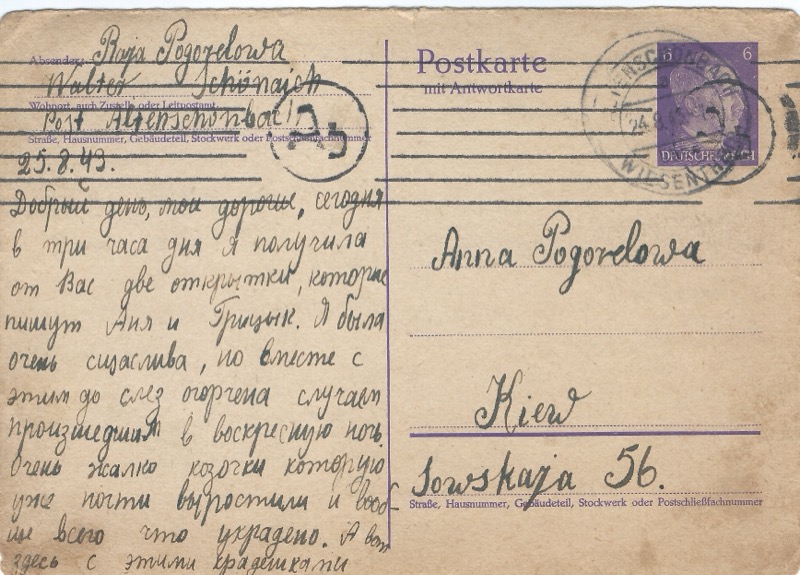 Absender: Raja Pogorelowa
Walter Schönaich
Wohnort, auch Zustell- oder Leitpostamt
Post Altenschönbach
Straße, Hausnummer, Gebäudeteil, Stockwerk oder Postschließfachnummer
25.8.43.
Добрый день, мои дорогие, сегодня
в три часа дня я получила
от Вас две открытки, которые
пишут Аня и Грицык. Я была
очень сщаслива, но вместе с
этим до слез огорчена случаем
произшедшим в воскресную ночь.
Очень жалко козочки которую
уже почти выростили и вооб
ще всего что украдено. А вот
здесь с этими крадешками
Postkarte
mit Antwortkarte
6 6
DEUTSCHES REICH
ALTENSCHÖNBACH
24.8.43
WIESENTHEID
Ab
Anna Pogorelowa
Kiew
Sowskaja 56.
Straße, Hausnummer, Gebäudeteil, Stockwerk oder Postschließfachnummer